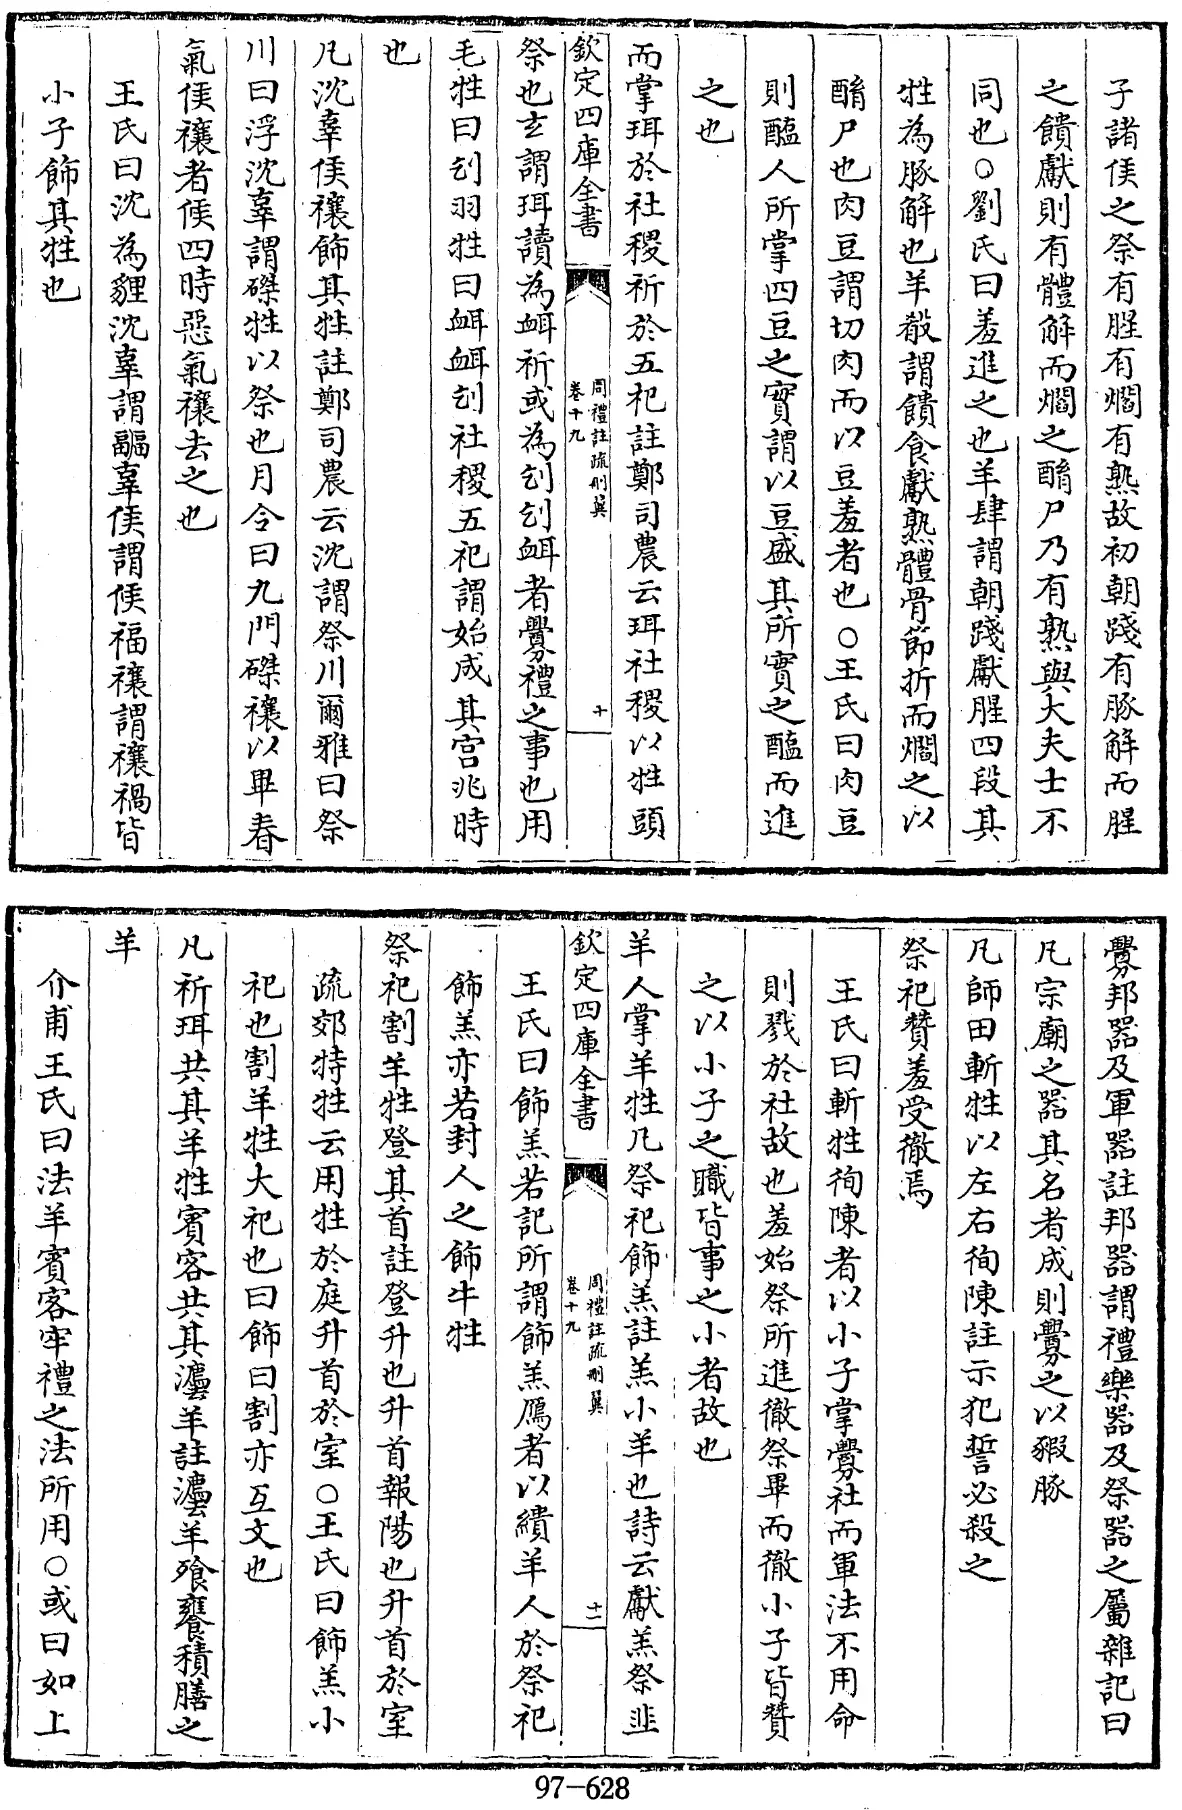 子諸侯之祭有腥有爓有熟故初朝踐有豚解而腥
之饋獻則有體解而爓之酳尸乃有熟與大夫士不
同也○劉氏曰羞進之也羊肆謂朝踐獻腥四段其
牲為豚解也羊殽謂饋食獻熟體骨節折而爓之以
酳尸也肉豆謂切肉而以豆羞者也○王氏曰肉豆
則醢人所掌四豆之實謂以豆盛其所實之醢而進
之也
而掌珥於社稷祈於五祀註鄭司農云珥社稷以牲頭
欽定四庫全書
周禮註疏刪翼
卷十九
十
祭也玄謂珥讀為衈祈或為刉刉衈者釁禮之事也用
毛牲曰刉羽牲曰衈衈刉社稷五祀謂始成其宫兆時
也
凡沈辜侯禳飾其牲註鄭司農云沈謂祭川爾雅曰祭
川曰浮沈辜謂磔牲以祭也月令曰九門磔禳以畢春
氣侯禳者候四時惡氣禳去之也
王氏曰沈為貍沈辜謂疈辜侯謂候福禳謂禳禍皆
小子飾其牲也
釁邦器及軍器註邦器謂禮樂器及祭器之屬雜記曰
凡宗廟之器其名者成則釁之以豭豚
凡師田斬牲以左右徇陳註示犯誓必殺之
祭祀贊羞受徹焉
王氏曰斬牲徇陳者以小子掌釁社而軍法不用命
則戮於社故也羞始祭所進徹祭畢而徹小子皆贊
之以小子之職皆事之小者故也
羊人掌羊牲凡祭祀飾羔註羔小羊也詩云獻羔祭韭
欽定四庫全書
周禮註疏刪翼
卷十九
十一
王氏曰飾羔若記所謂飾羔鴈者以繢羊人於祭祀
飾羔亦若封人之飾牛牲
祭祀割羊牲登其首註登升也升首報陽也升首於室
疏郊特牲云用牲於庭升首於室○王氏曰飾羔小
祀也割羊牲大祀也曰飾曰割亦互文也
凡祈珥共其羊牲賓客共其灋羊註灋羊飱饔積膳之
羊
介甫王氏曰法羊賓客牢禮之法所用○或曰如上
97-628